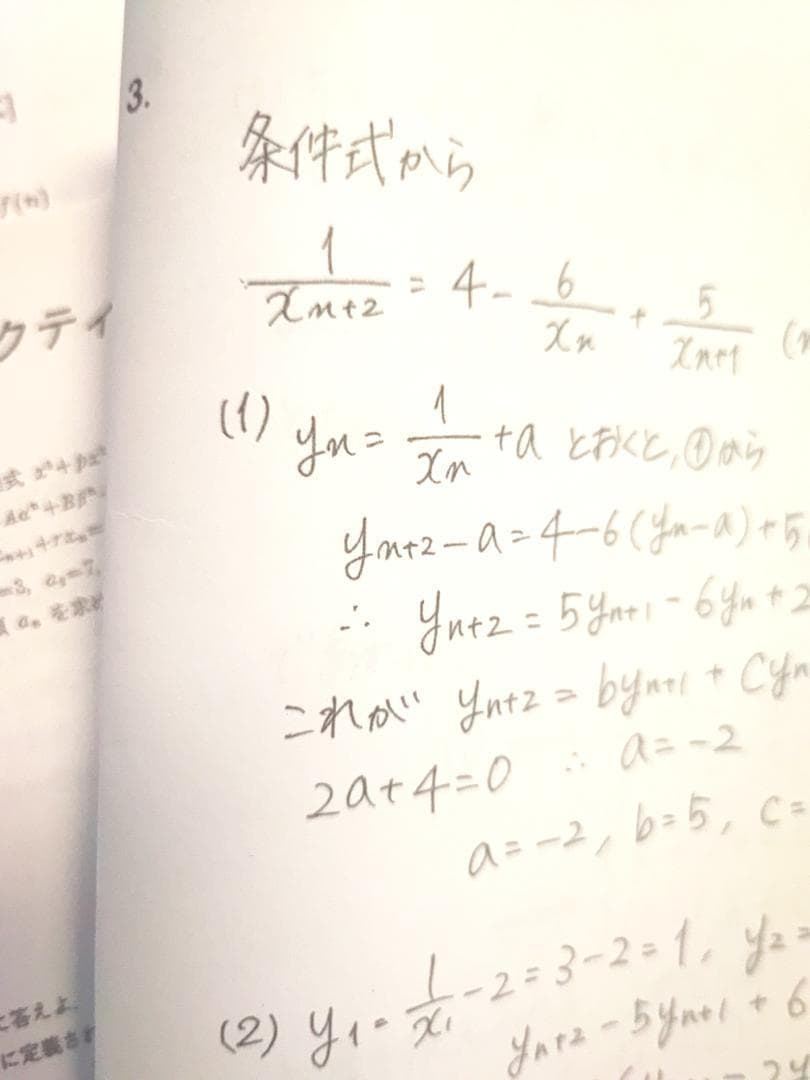 3.
条件式から
1/x_{n+2} = 4 - 6/x_n + 5/x_{n+1} (n
(1) y_n = 1/x_n + a とおくと, ①から
y_{n+2} - a = 4 - 6(y_n - a) + 5
∴ y_{n+2} = 5y_{n+1} - 6y_n + 2
これが y_{n+2} = by_{n+1} + Cy_n
2a + 4 = 0 ∴ a = -2
a = -2, b = 5, c =
(2) y_1 = 1/x_1 - 2 = 3 - 2 = 1, y_2 =
y_{n+2} - 5y_{n+1} + 6
f(n)
クティ
を求め
に答えよ
に定義され